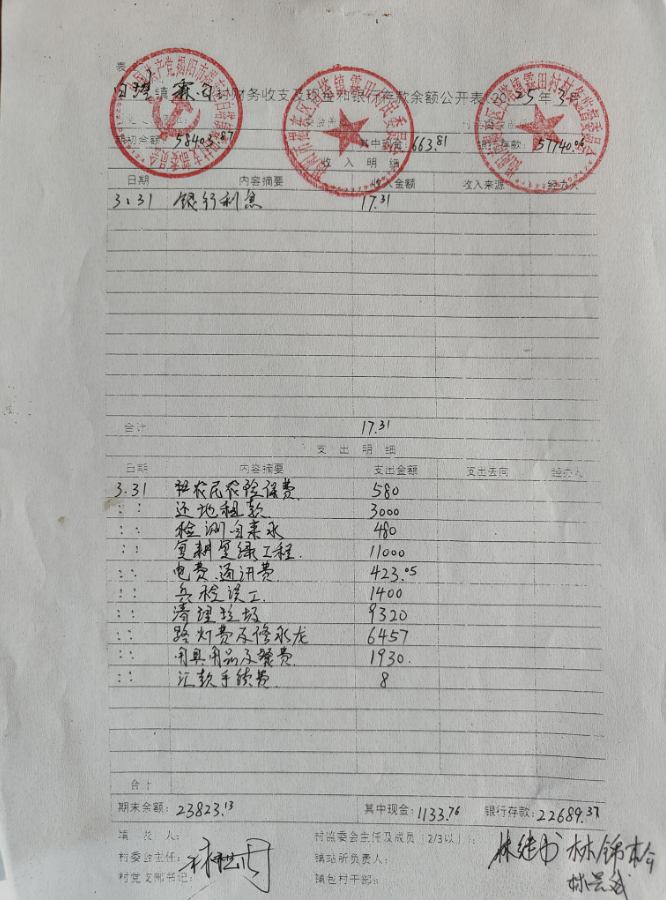 表
白塔镇霖田村财务收支及现金和银行存款余额公开表 2025年3月
期初余额: 58403.87 其中现金: 663.81 银行存款: 57740.06
收入明细
日期 内容摘要 收入金额 收入来源 经办人
3.31 银行利息 17.31
合计 17.31
支出明细
日期 内容摘要 支出金额 支出去向 经办人
3.31 农民农险保费 580
:: 还地租款 3000
:: 检测自来水 480
:: 复耕复绿工程. 11000
:: 电费.通讯费 423.05
:: 兵检误工. 1400
:: 清理垃圾 9320
:: 路灯费及修水龙 6457
:: 用具用品及餐费. 1930.
:: 汇款手续费. 8
合计
期末余额: 23823.13 其中现金: 1133.76 银行存款: 22689.37
填表人: 村监委会主任及成员(2/3以上):
村委会主任: 镇站所负责人:
村党支部书记: 镇包村干部:
林锦